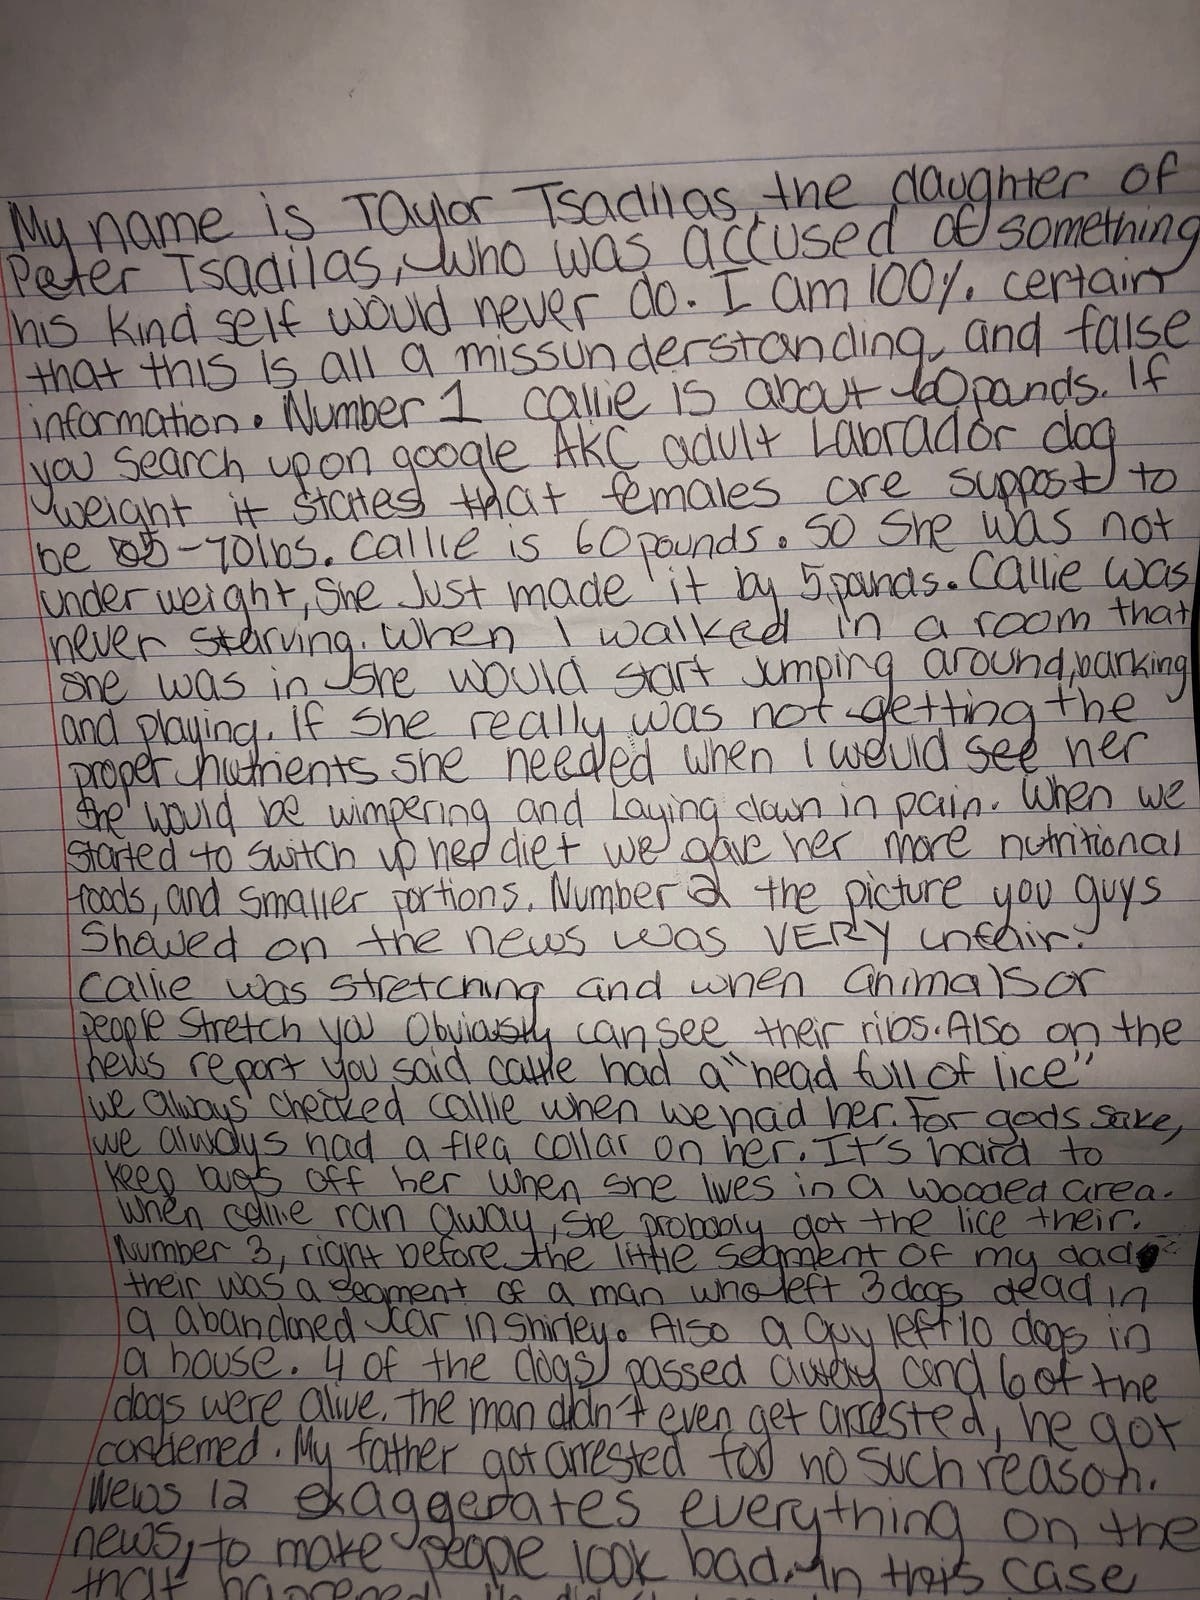 My name is Taylor Tsadilas, the daughter of
Peter Tsadilas, who was accused of something
his kind self would never do. I am 100% certain
that this is all a missunderstanding, and false
information. Number 1 callie is about 60 pounds. If
you search upon google AKC adult Labrador dog
weight it states that females are suppost to
be 55-70lbs. Callie is 60 pounds. So she was not
underweight, she Just made it by 5 pounds. Callie was
never starving. When I walked in a room that
she was in she would start Jumping around, barking
and playing. If she really was not getting the
proper nutrients she needed when I would see her
she would be wimpering and Laying down in pain. When we
started to switch up her diet we gave her more nutritional
foods, and smaller portions. Number 2 the picture you guys
Showed on the news was VERY unfair.
Callie was stretching and when animals or
people stretch you Obviously can see their ribs. Also on the
news report you said callie had a "head full of lice"
we always checked callie when we had her. For gods sake,
we always had a flea collar on her. It's hard to
keep bugs off her when she lives in a wooded area.
When callie ran away, she probably got the lice their.
Number 3, right before the little segment of my dad
their was a segment of a man who left 3 dogs dead in
a abandoned car in Shirley. Also a guy left 10 dogs in
a house. 4 of the dogs passed away and 6 of the
dogs were alive. The man didn't even get arrested, he got
condemed. My father got arrested for no such reason.
News 12 exaggerates everything on the
news, to make people look bad. In this case
that happened